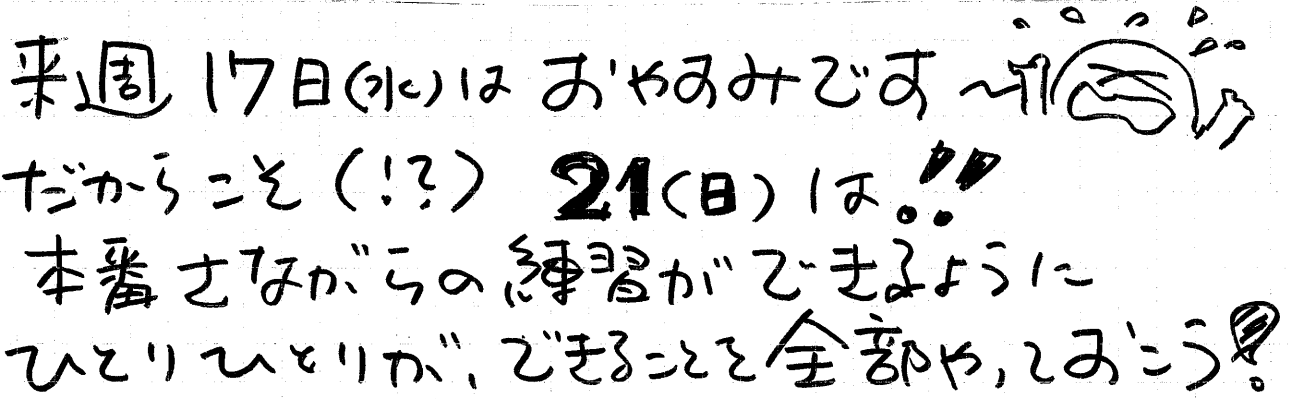 来週 17日(水)は おやすみです〜
だからこそ(!?) 21(日)は!!
本番さながらの練習ができるように
ひとりひとりが、できることを全部やっておこう!